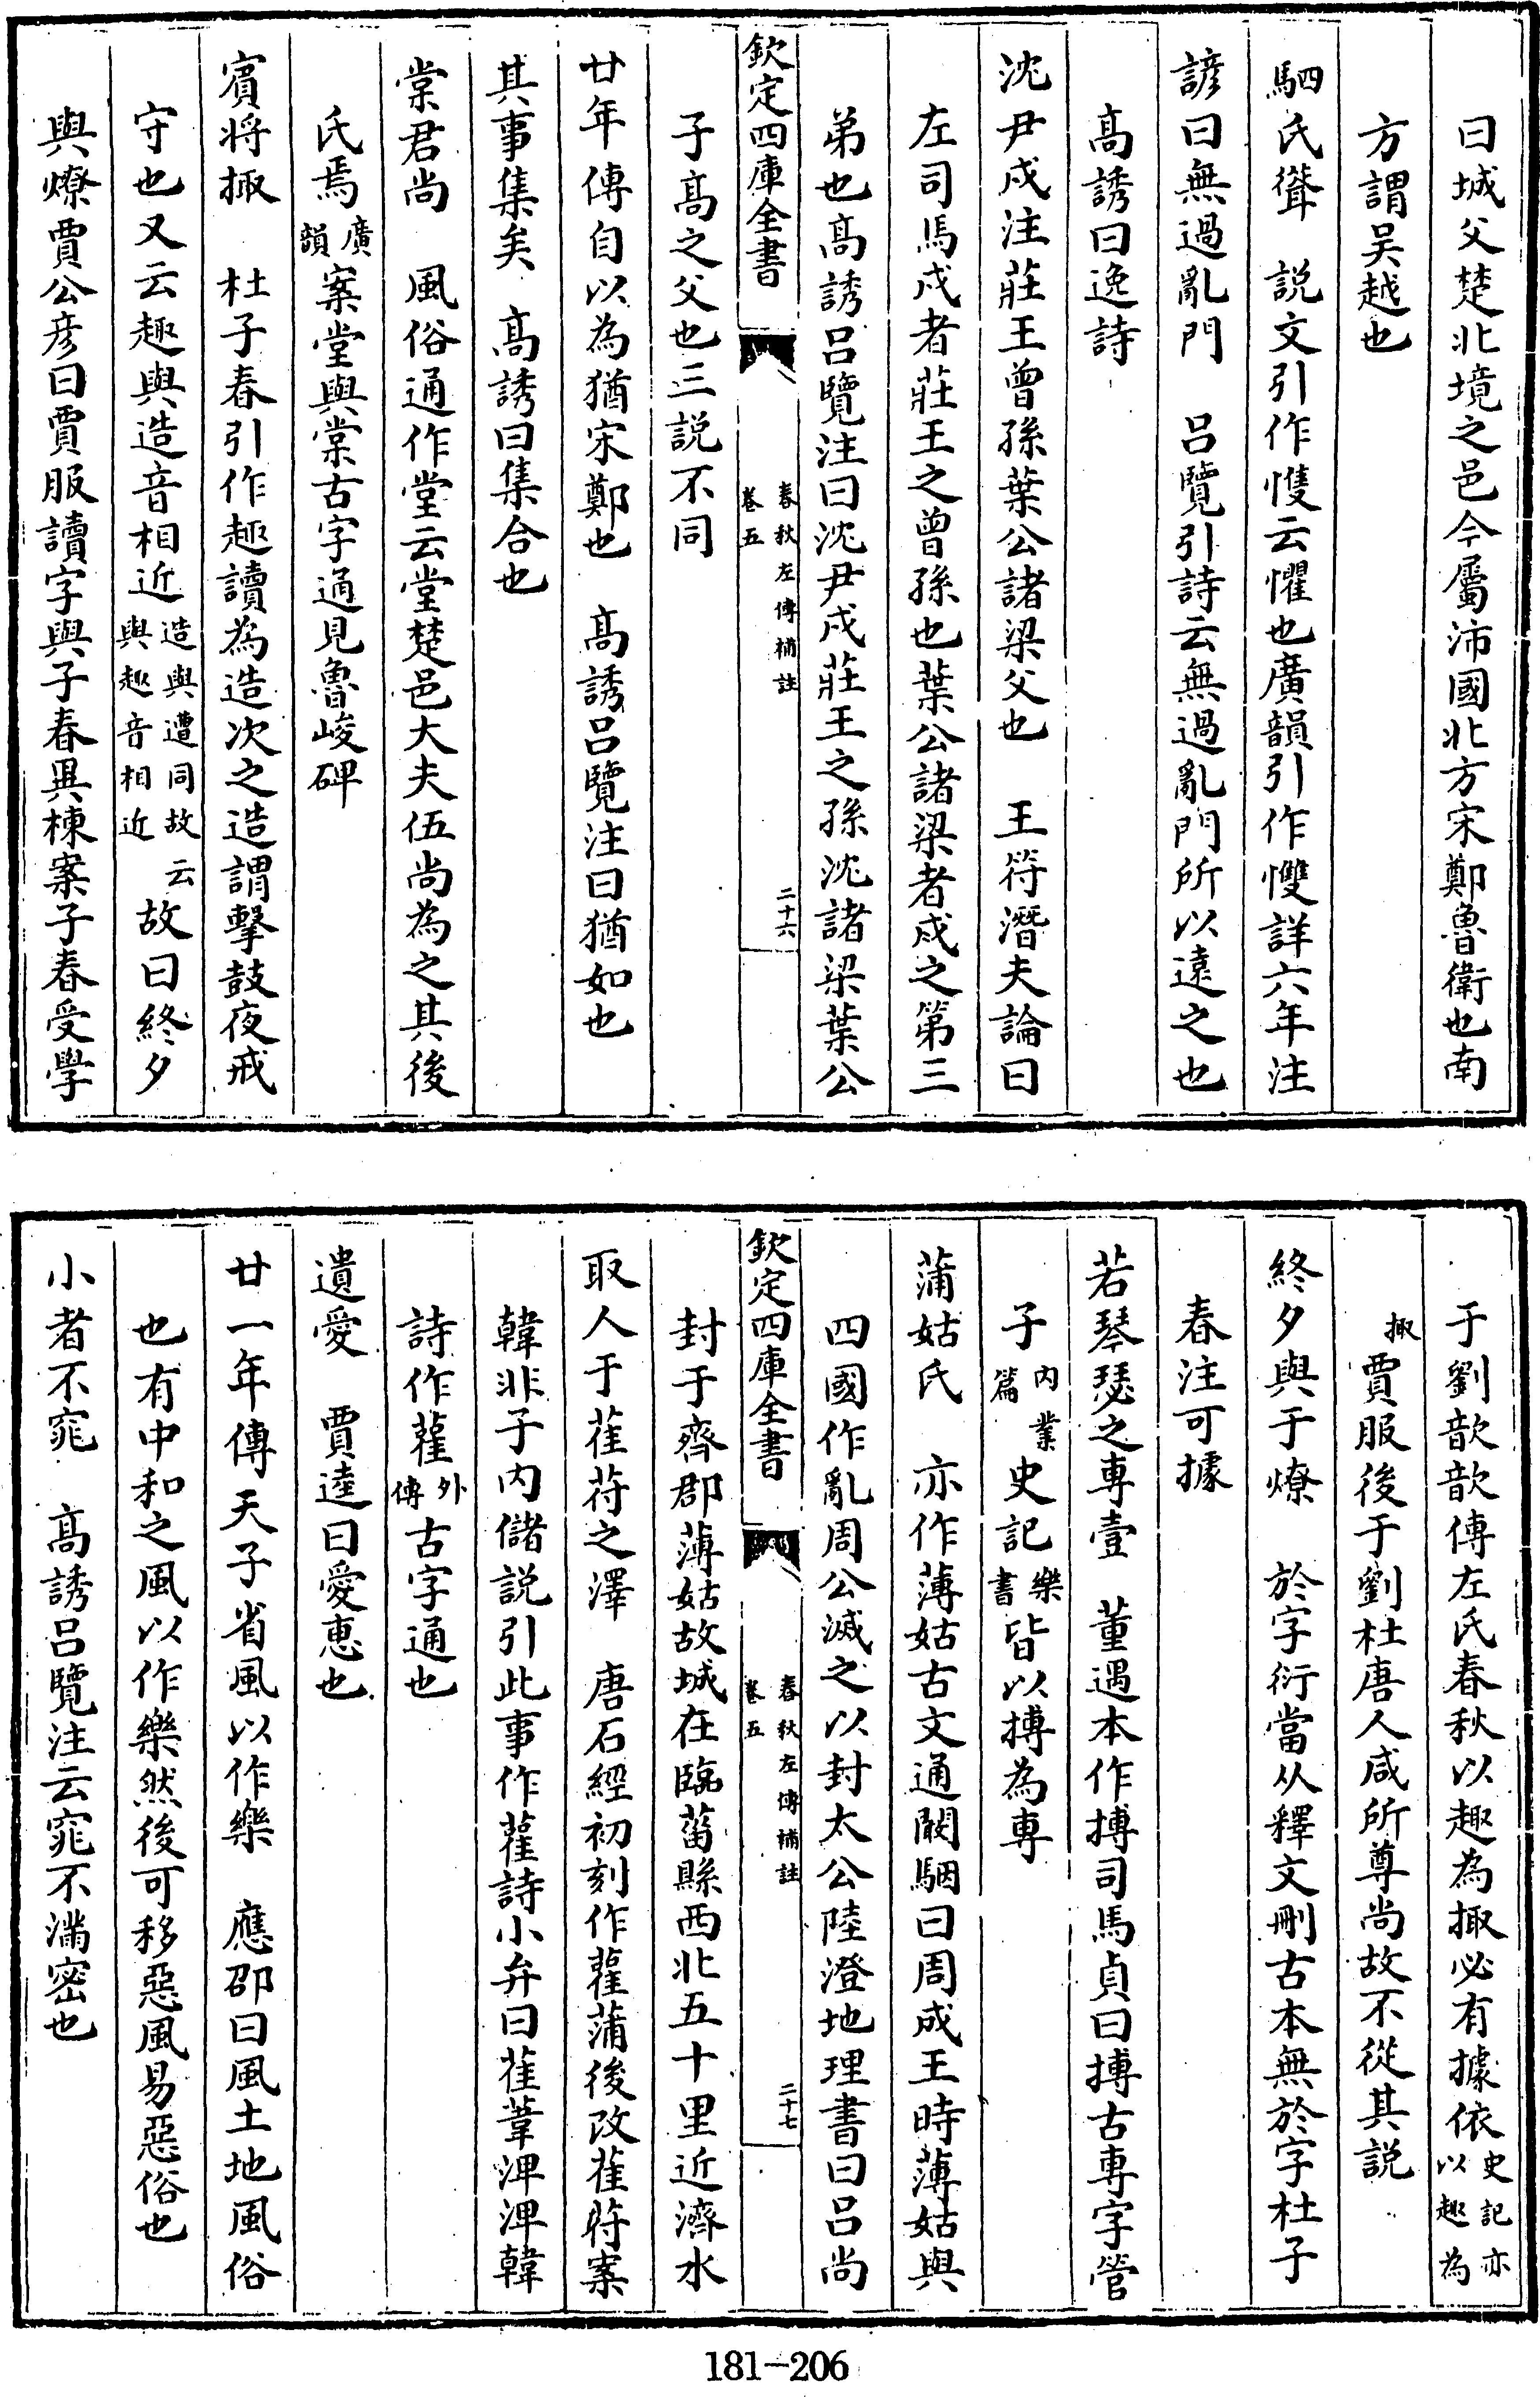 曰城父楚北境之邑今屬沛國北方宋鄭魯衛也南
方謂吴越也
駟氏聳　説文引作愯云懼也廣韻引作㦼詳六年注
諺曰無過亂門　吕覽引詩云無過亂門所以遠之也
髙誘曰逸詩
沈尹戍注莊王曾孫葉公諸梁父也　王符潛夫論曰
左司馬戍者莊王之曾孫也葉公諸梁者戍之第三
弟也髙誘吕覽注曰沈尹戍莊王之孫沈諸梁葉公
欽定四庫全書
春秋左傳補註
卷五
二十六
子髙之父也三説不同
廿年傳自以為猶宋鄭也　髙誘吕覽注曰猶如也
其事集矣　髙誘曰集合也
棠君尚　風俗通作堂云堂楚邑大夫伍尚為之其後
氏焉廣韻案堂與棠古字通見魯峻碑
賓將掫　杜子春引作趣讀為造次之造謂擊鼓夜戒
守也又云趣與造音相近造與遭同故云與趣音相近故曰終夕
與燎賈公彦曰賈服讀字與子春異棟案子春受學
于劉歆歆傳左氏春秋以趣為掫必有據依史記亦以趣為
掫賈服後于劉杜唐人咸所尊尚故不從其説
終夕與于燎　於字衍當从釋文刪古本無於字杜子
春注可據
若琴瑟之專壹　董遇本作摶司馬貞曰摶古專字管
子内業篇史記樂書皆以摶為專
蒲姑氏　亦作薄姑古文通闞駰曰周成王時薄姑與
四國作亂周公滅之以封太公陸澄地理書曰吕尚
欽定四庫全書
春秋左傳補註
卷五
二十七
封于齊郡薄姑故城在臨菑縣西北五十里近濟水
取人于萑苻之澤　唐石經初刻作雚蒲後改萑苻案
韓非子内儲説引此事作雚詩小弁曰萑葦淠淠韓
詩作雚外傳古字通也
遺愛　賈逵曰愛惠也
廿一年傳天子省風以作樂　應邵曰風土地風俗
也有中和之風以作樂然後可移惡風易惡俗也
小者不窕　髙誘吕覽注云窕不滿密也
181-206